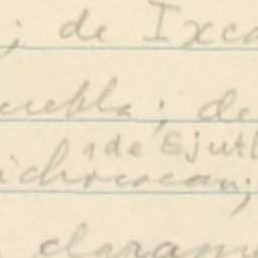 ; de Ixca
uebla; de
, de Ejutl
ichoacan;
claram